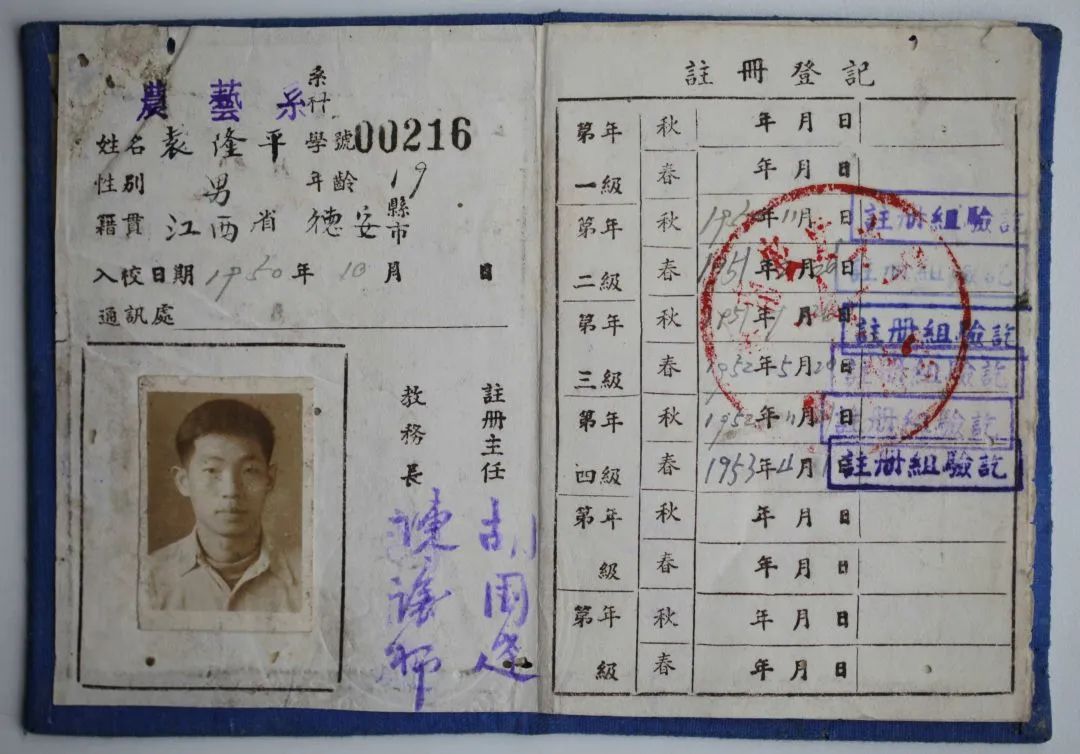 農藝系 系科
姓名 袁隆平 學號 00216
性別 男 年齡 19
籍貫 江西省 德安 縣市
入校日期 1950年10月 日
通訊處
註冊主任
教務長
註冊登記
第一年級 秋 年月日
春 年月日
第二年級 秋 年11月 日 註册組驗訖
春 1951年 月 日 註册組驗訖
第三年級 秋 1951年 月 日 註册組驗訖
春 1952年5月 日 註册組驗訖
第四年級 秋 1952年11月 日 註册組驗訖
春 1953年4月 註册組驗訖
第年級 秋 年月日
春 年月日
第年級 秋 年月日
春 年月日